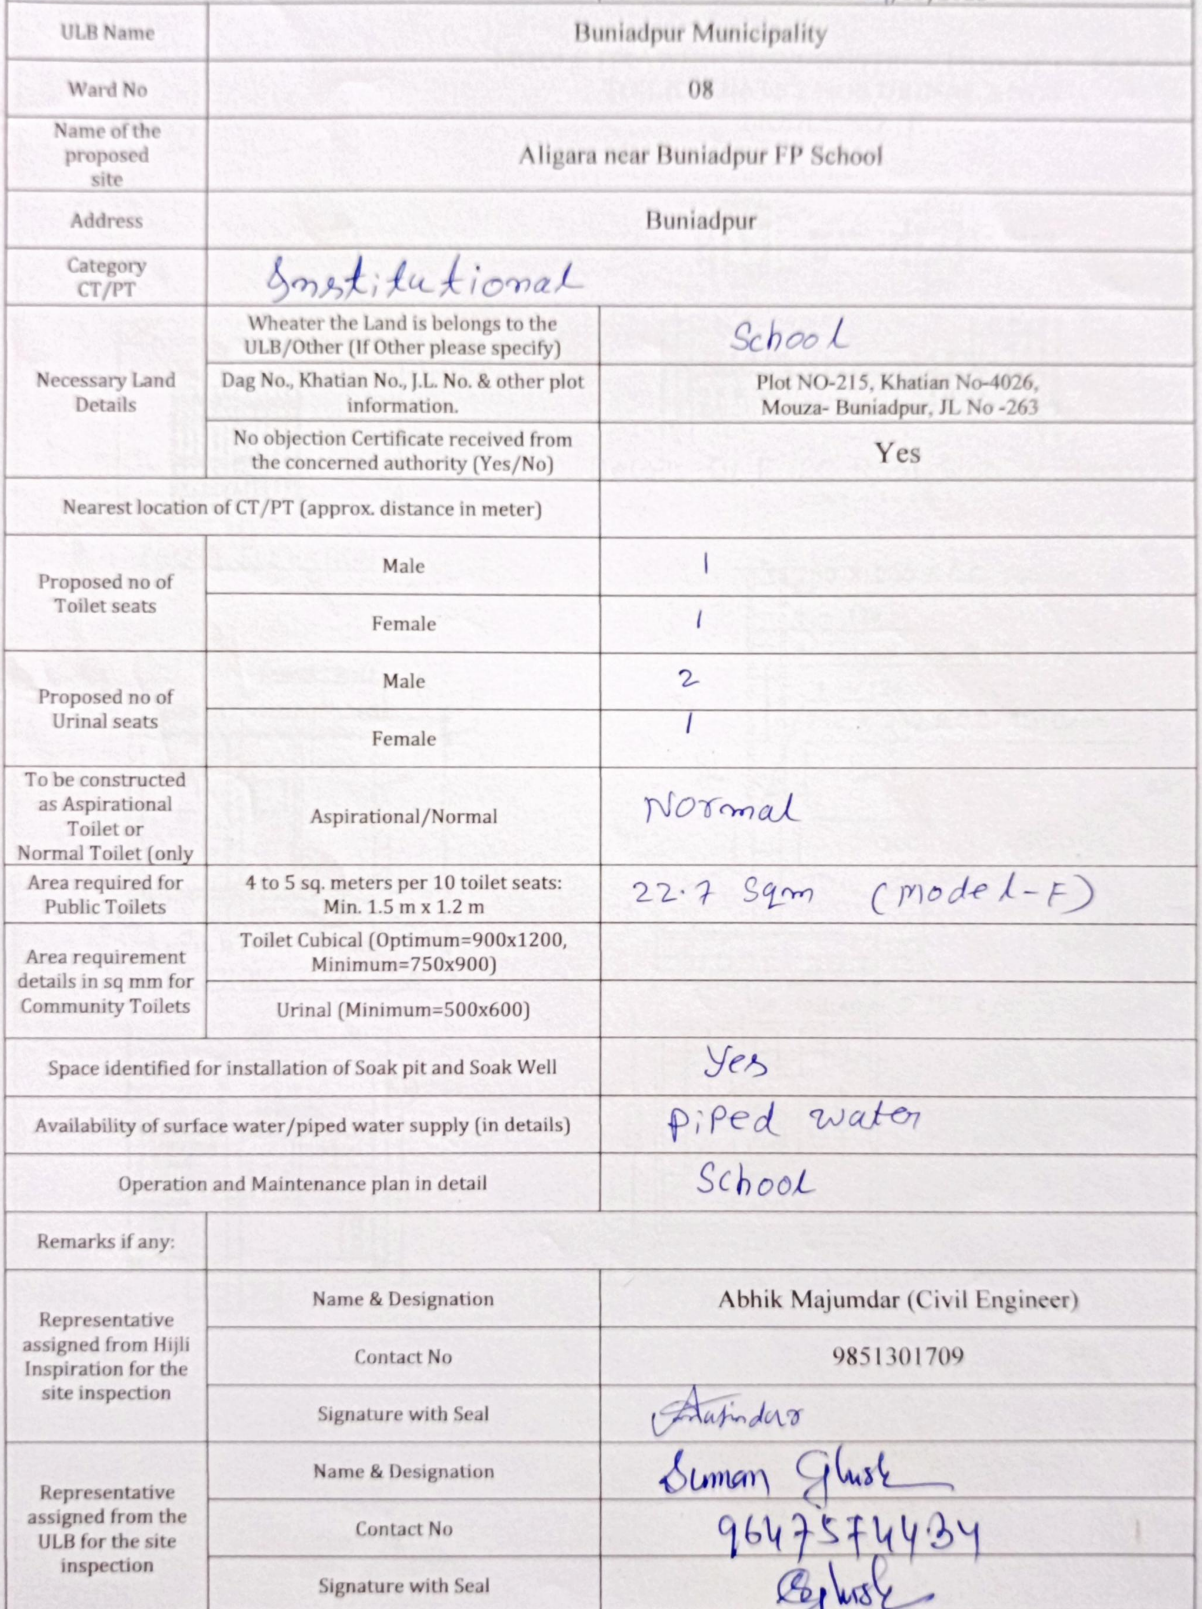 ULB Name
Buniadpur Municipality
Ward No
08
Name of the
proposed
site
Aligara near Buniadpur FP School
Address
Buniadpur
Category
CT/PT
Institutional
Necessary Land
Details
Wheater the Land is belongs to the
ULB/Other (If Other please specify)
School
Dag No., Khatian No., J.L. No. & other plot
information.
Plot NO-215, Khatian No-4026,
Mouza- Buniadpur, JL No -263
No objection Certificate received from
the concerned authority (Yes/No)
Yes
Nearest location of CT/PT (approx. distance in meter)
Proposed no of
Toilet seats
Male
1
Female
1
Proposed no of
Urinal seats
Male
2
Female
1
To be constructed
as Aspirational
Toilet or
Normal Toilet (only
Aspirational/Normal
Normal
Area required for
Public Toilets
4 to 5 sq. meters per 10 toilet seats:
Min. 1.5 m x 1.2 m
22.7 Sqm (Model-F)
Area requirement
details in sq mm for
Community Toilets
Toilet Cubical (Optimum=900x1200,
Minimum=750x900)
Urinal (Minimum=500x600)
Space identified for installation of Soak pit and Soak Well
Yes
Availability of surface water/piped water supply (in details)
Piped water
Operation and Maintenance plan in detail
School
Remarks if any:
Representative
assigned from Hijli
Inspiration for the
site inspection
Name & Designation
Abhik Majumdar (Civil Engineer)
Contact No
9851301709
Signature with Seal
Representative
assigned from the
ULB for the site
inspection
Name & Designation
Suman Ghosh
Contact No
9647574434
Signature with Seal